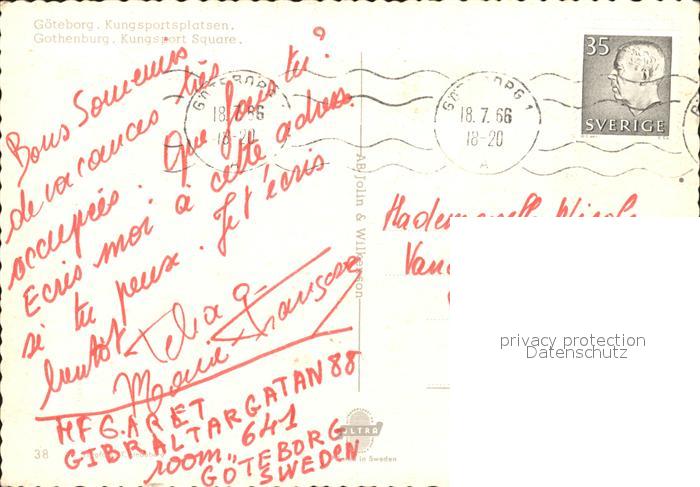 Göteborg. Kungsportsplatsen.
Gothenburg. Kungsport Square.
Bons Souvenirs
de vacances très
occupées. Que fais tu?
Ecris moi à cette adresse
si tu peux. Je t'écris
bientôt
Marie Françoise
MF GARET
GIBRALTARGATAN 88
room 641
GÖTEBORG
SWEDEN
38
GÖTEBORG 1
18.7.66
18-20
A
GÖTEBORG 1
18.7.66
18-20
A
35
SVERIGE
AB Jolin & Wilkenson
Mademoiselle Nicole
ULTRA
Made in Sweden
privacy protection
Datenschutz